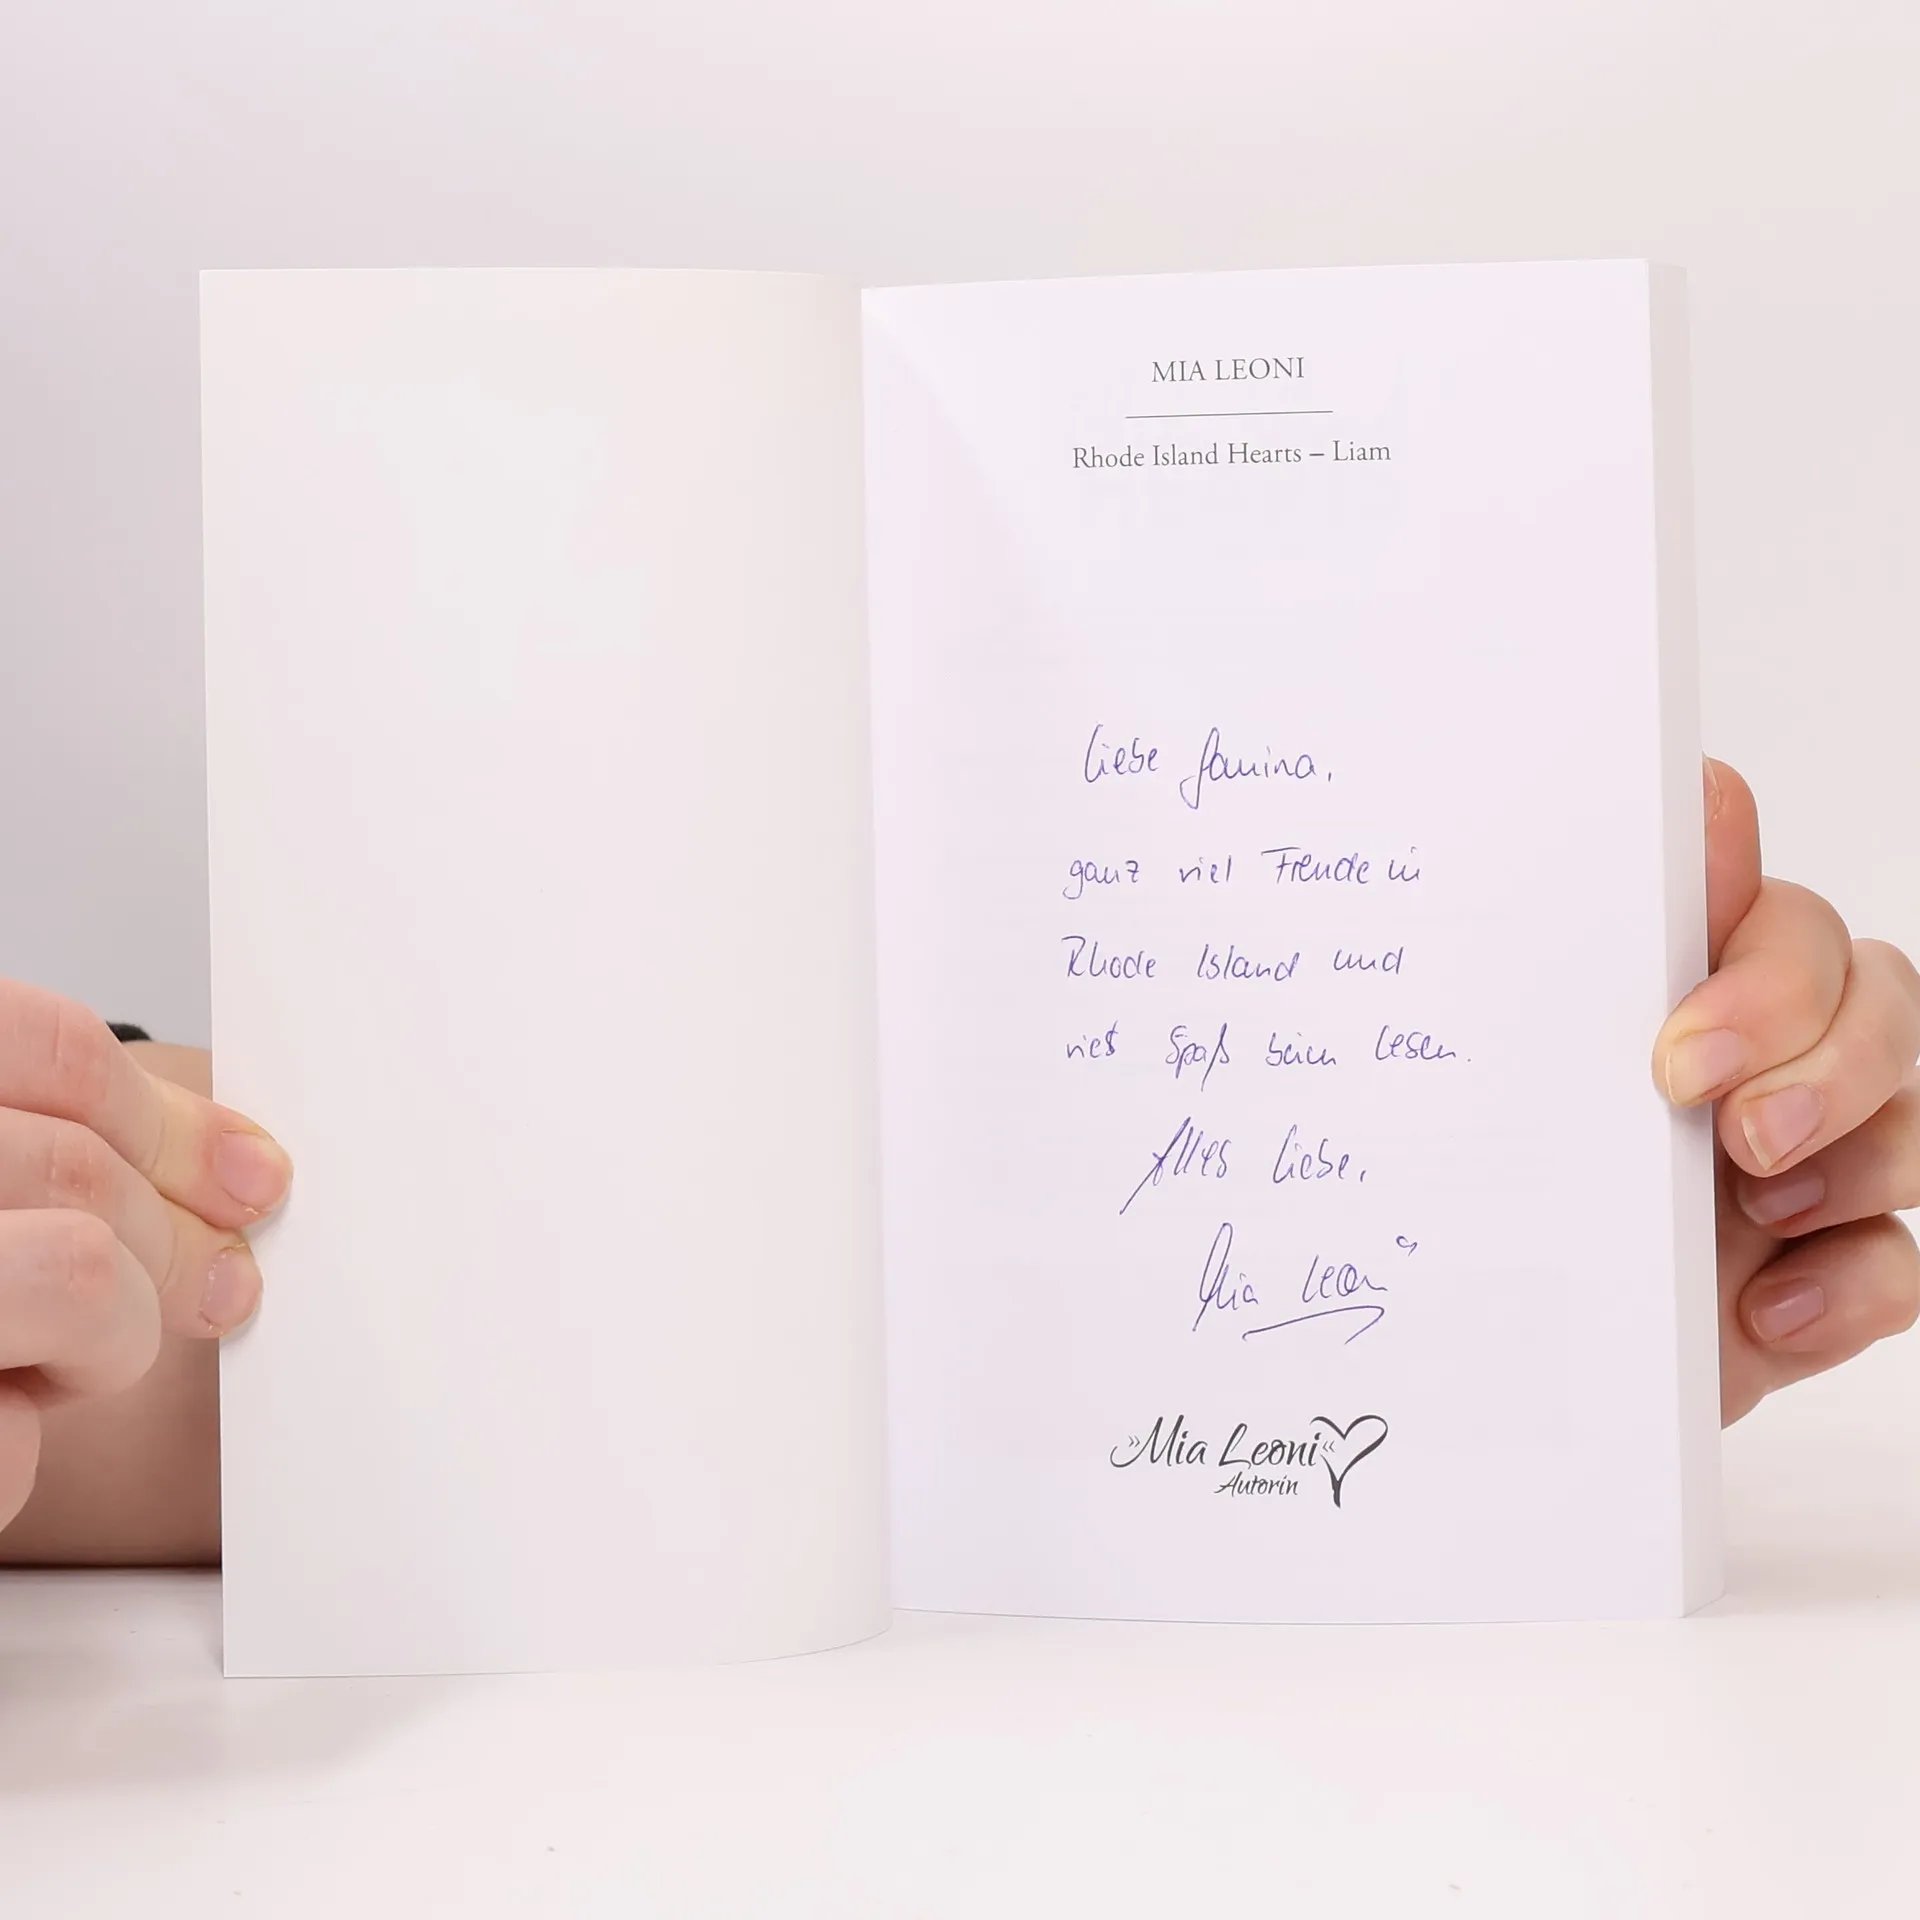 MIA LEONI
Rhode Island Hearts – Liam
Liebe Janina,
ganz viel Freude in
Rhode Island und
viel Spaß beim Lesen.
Alles Liebe,
Mia Leoni
»Mia Leoni«
Autorin